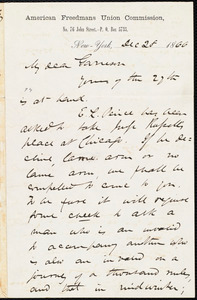 American Freedmans Union Commission,
No. 76 John Street.—P. O. Box 5733.
New-York, Dec 28 1866
My dear Garrison
Yours of the 27th
is at hand.
E. L. Pierce has been
asked to take Judge
place at Chicago. If he de-
cline &
come we shall be
compelled to come to you.
To be sure it will require
some cheek to ask a
man who is an invalid
to accompany another who
is also an invalid on a
journey of a thousand miles,
and that in midwinter;